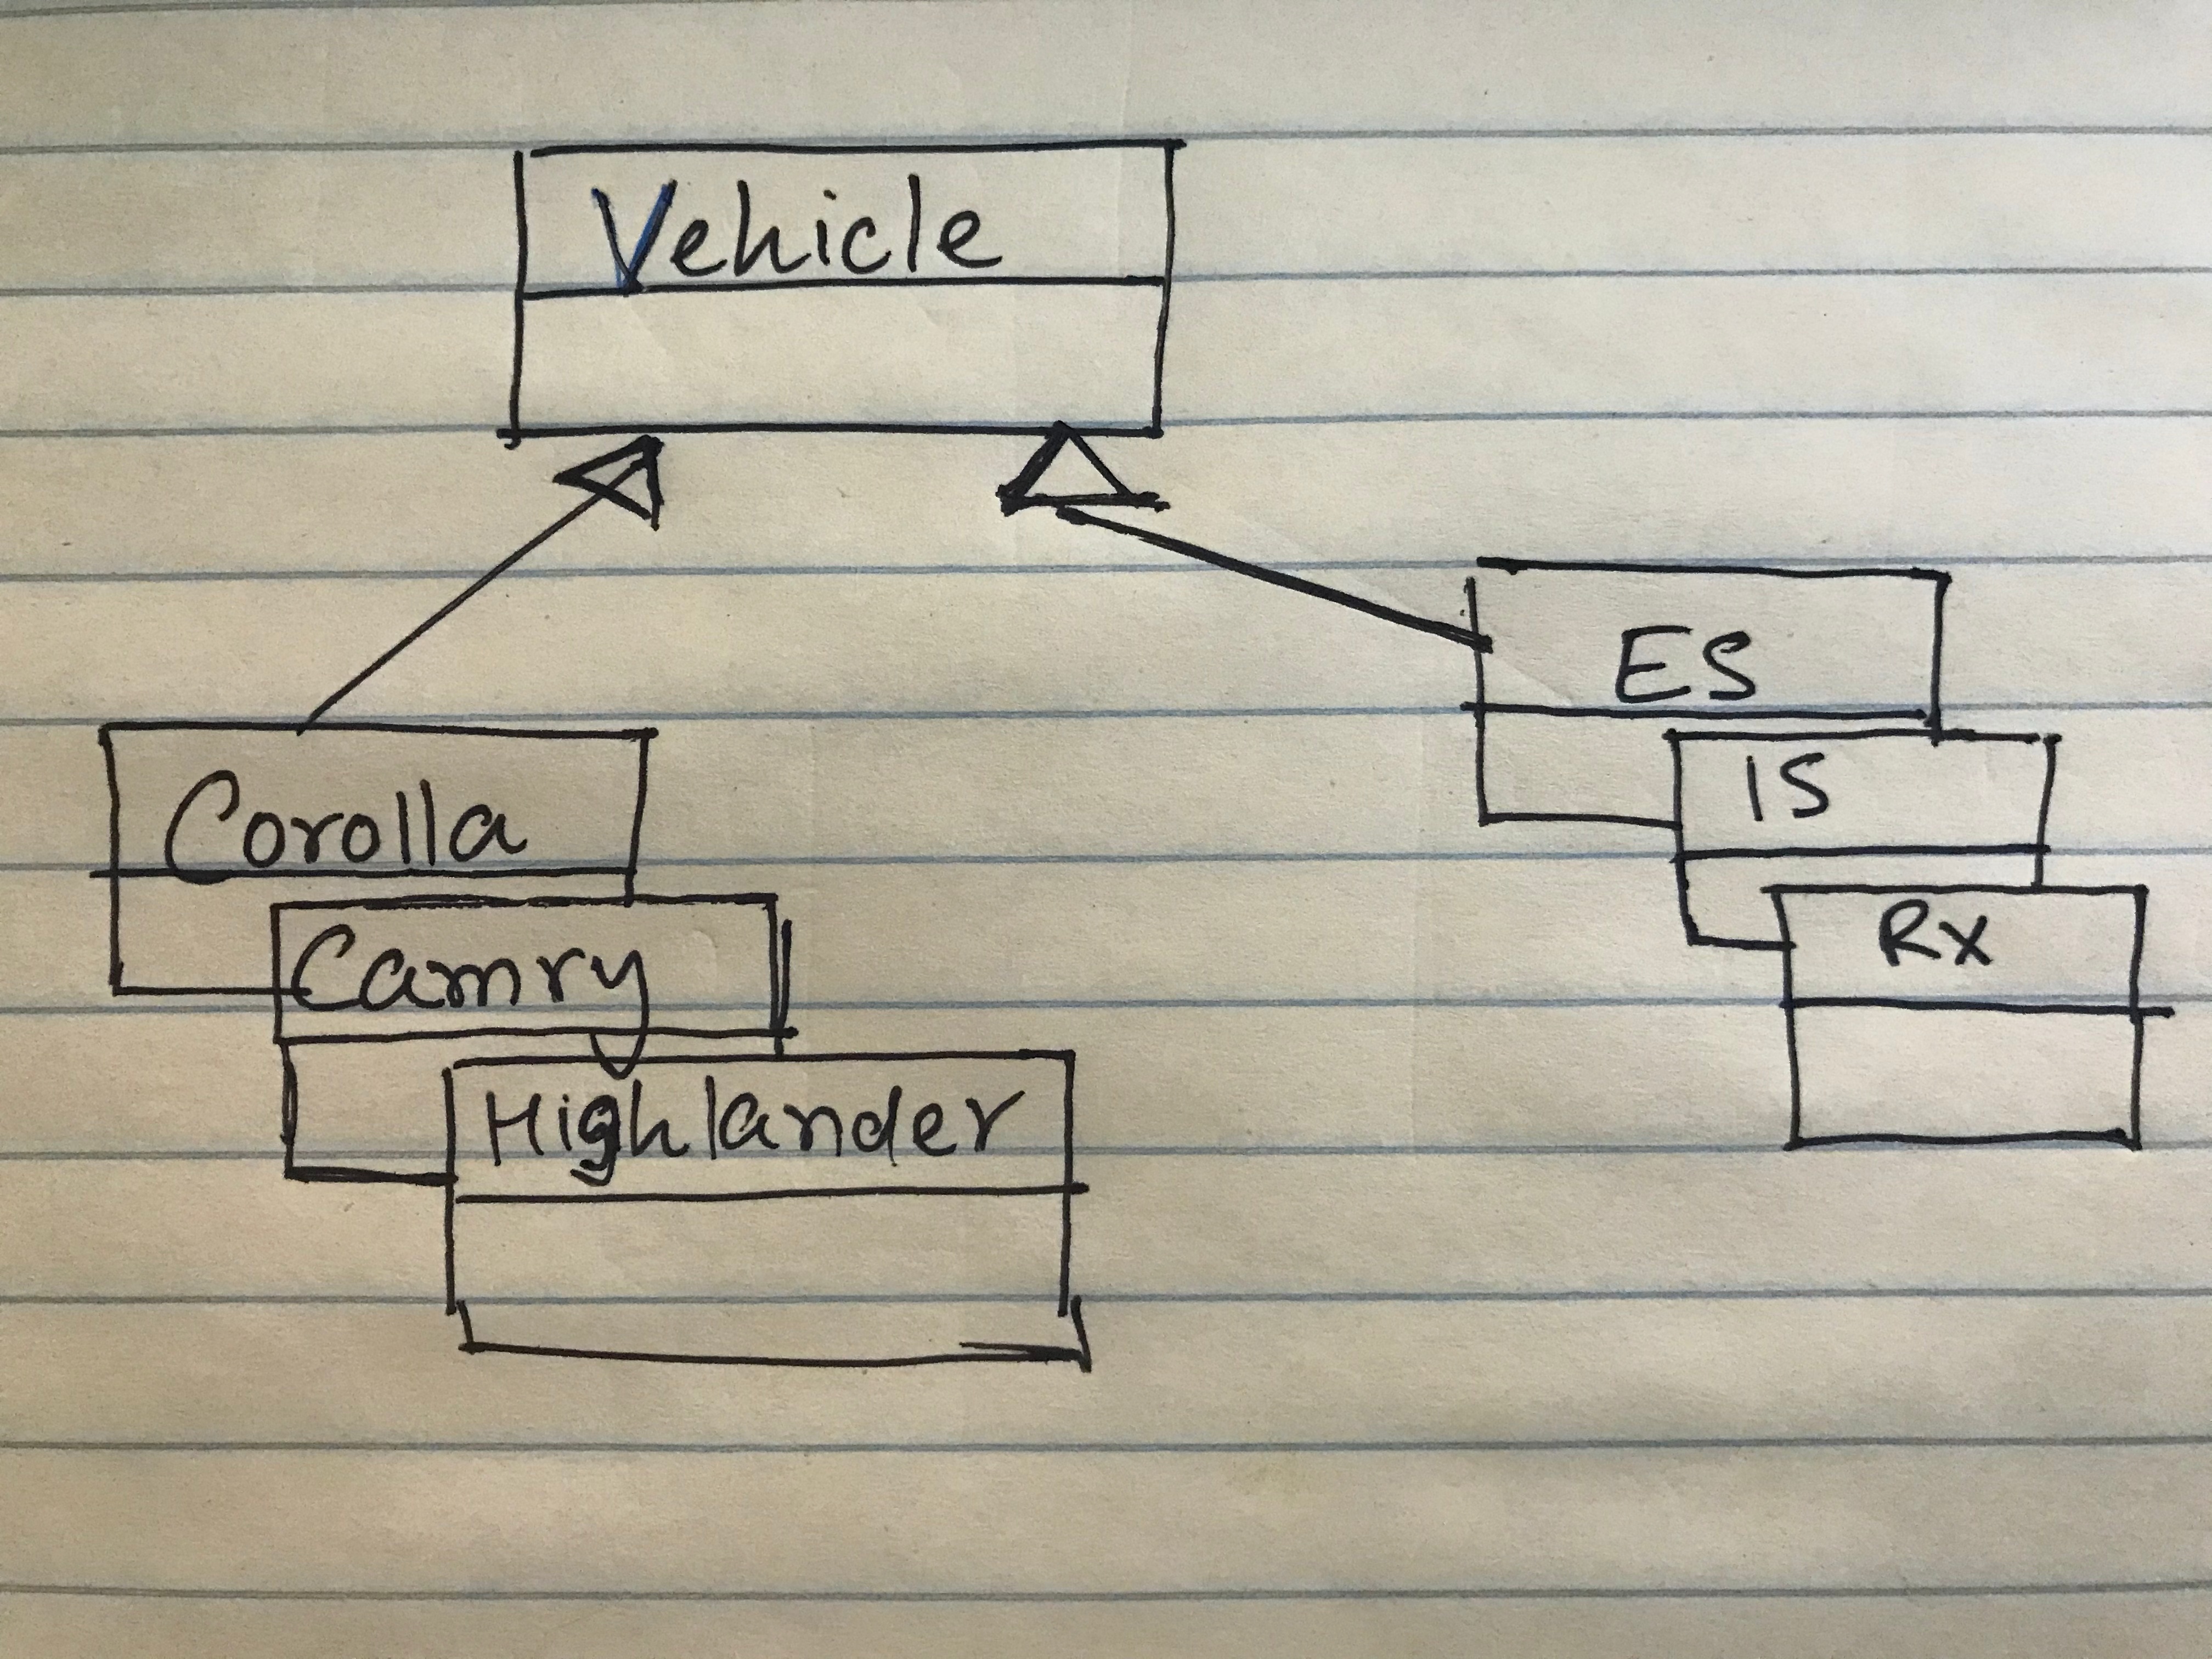 Vehicle
Corolla
Camry
Highlander
ES
IS
RX